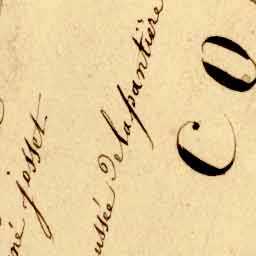 né josset
ussée Delapantière
CO